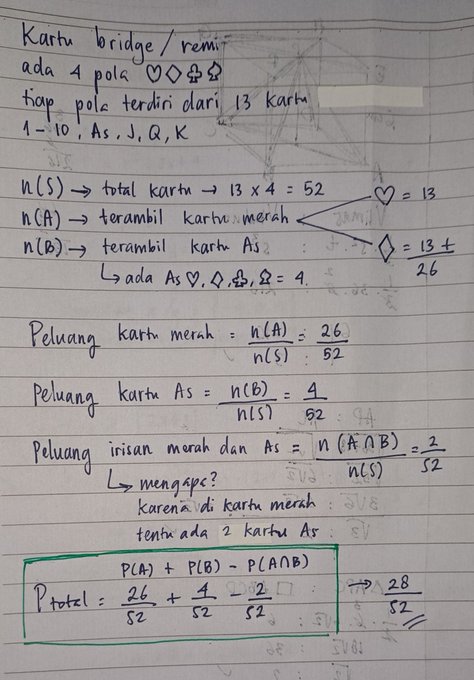 Kartu bridge / remi
ada 4 pola ♡ ◇ ♧ ♤
tiap pola terdiri dari 13 kartu
1-10, As, J, Q, K
n(S) → total kartu → 13 x 4 = 52
n(A) → terambil kartu merah
♡ = 13
◇ = 13 +
26
n(B) → terambil kartu As
↳ ada As ♡, ◇, ♧, ♤ = 4
Peluang kartu merah = n(A)/n(S) = 26/52
Peluang kartu As = n(B)/n(S) = 4/52
Peluang irisan merah dan As = n(A∩B)/n(S) = 2/52
↳ mengapa?
karena di kartu merah
tentu ada 2 kartu As
P(A) + P(B) - P(A∩B)
P total = 26/52 + 4/52 - 2/52 → 28/52